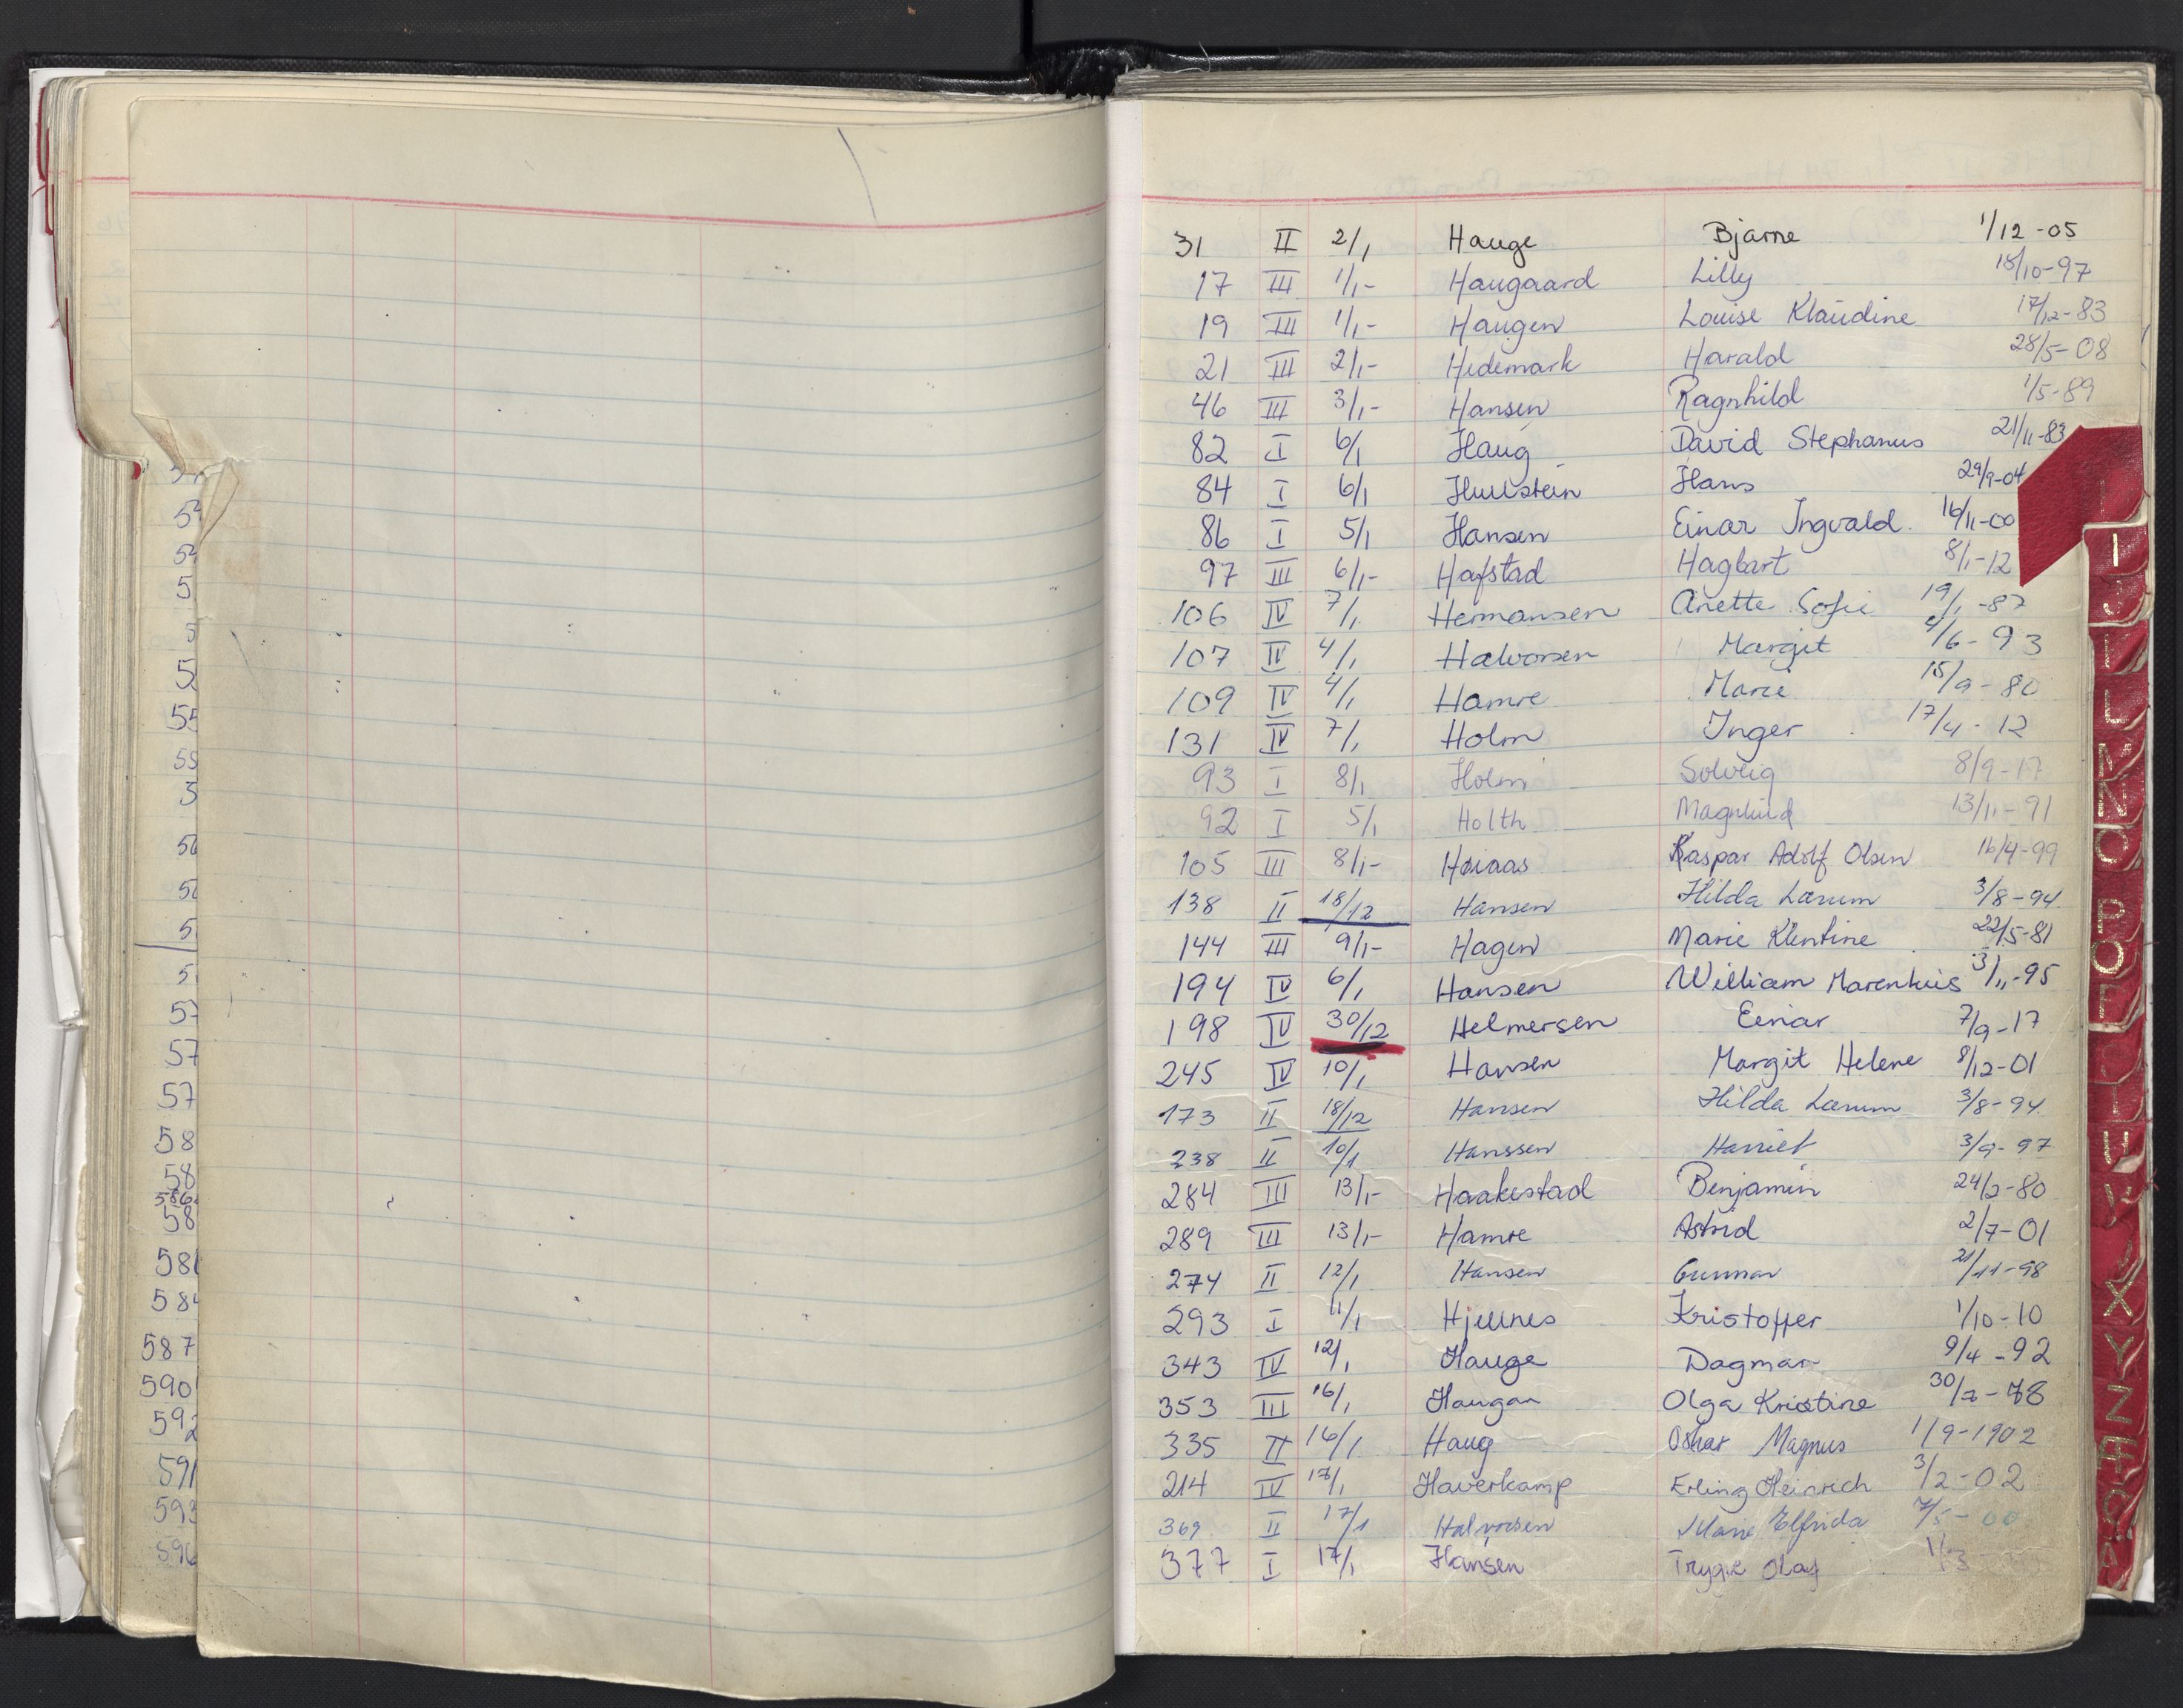 31 II 2/1 Hauge Bjarne 1/12-05
17 III 1/1- Haugaard Lilly 18/10-97
19 III 1/1- Haugen Louise Klaudine 17/12-83
21 III 2/1- Hedemark Harald 28/5-08
46 III 3/1- Hansen Ragnhild 1/5-89
82 I 6/1 Haug David Stephanus 21/11-83
84 I 6/1 Hans 29/9-04
86 I 5/1 Hansen Einar Ingvald. 16/11-00
97 III 6/1- Hafstad Hagbart 8/1-12
106 IV 7/1 Hermansen Anette Sofie 19/1-87
107 IV 4/1 Halvorsen Margit 4/6-93
109 IV 4/1 Hamre Marie 15/9-80
131 IV 7/1 Holm Inger 17/4-12
93 I 8/1 Holm Solveig 8/9-17
92 I 5/1 Holth Magnhild 13/11-91
105 III 8/1- Høiaas Kaspar Adolf Olsen 16/4-99
138 II 18/12 Hansen Hilda Lærum 3/8-94
144 III 9/1- Hagen Marie Klentine 22/5-81
194 IV 6/1 Hansen William Marenhius 3/11-95
198 IV 30/12 Helmersen Einar 7/9-17
245 IV 10/1 Hansen Margit Helene 8/12-01
173 II 18/12 Hansen Hilda Lærum 3/8-94
238 II 10/1 Hanssen Harriet 3/9-97
284 III 13/1- Haakestad Benjamin 24/2-80
289 III 13/1- Hamre Astrid 2/7-01
274 II 12/1 Hansen Gunnar 21/11-98
293 I 11/1 Hjellnes Kristoffer 1/10-10
343 IV 12/1 Hauge Dagmar 9/4-92
353 III 16/1 Haugan Olga Kristine 30/7-78
335 II 16/1 Haug Oskar Magnus 1/9-1902
214 IV 17/1 Haverkamp Erling Heinrich 3/2-02
369 II 17/1 Halvorsen Marie Elfrida 7/5-00
377 I 17/1 Hansen Trygve Olaf 1/3
587
590
592
591
593
596
I
J
K
L
M
N
O
P
Q
R
S
T
U
V
X
Y
Z
Æ
Ø